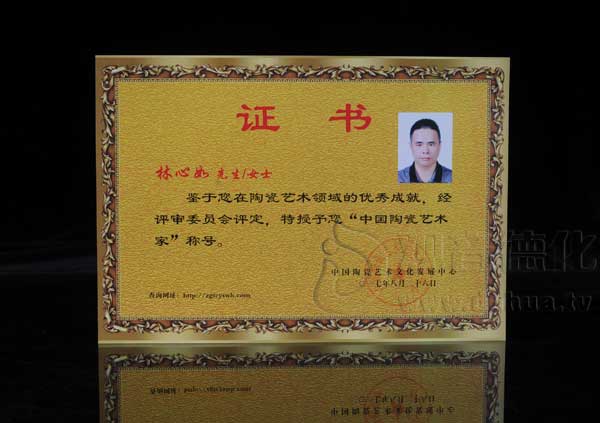 证 书
林心如 先生/女士
鉴于您在陶瓷艺术领域的优秀成就，经
评审委员会评定，特授予您“中国陶瓷艺术
家”称号。
中国陶瓷艺术文化发展中心
年八月二十六日
查询网址：
德化